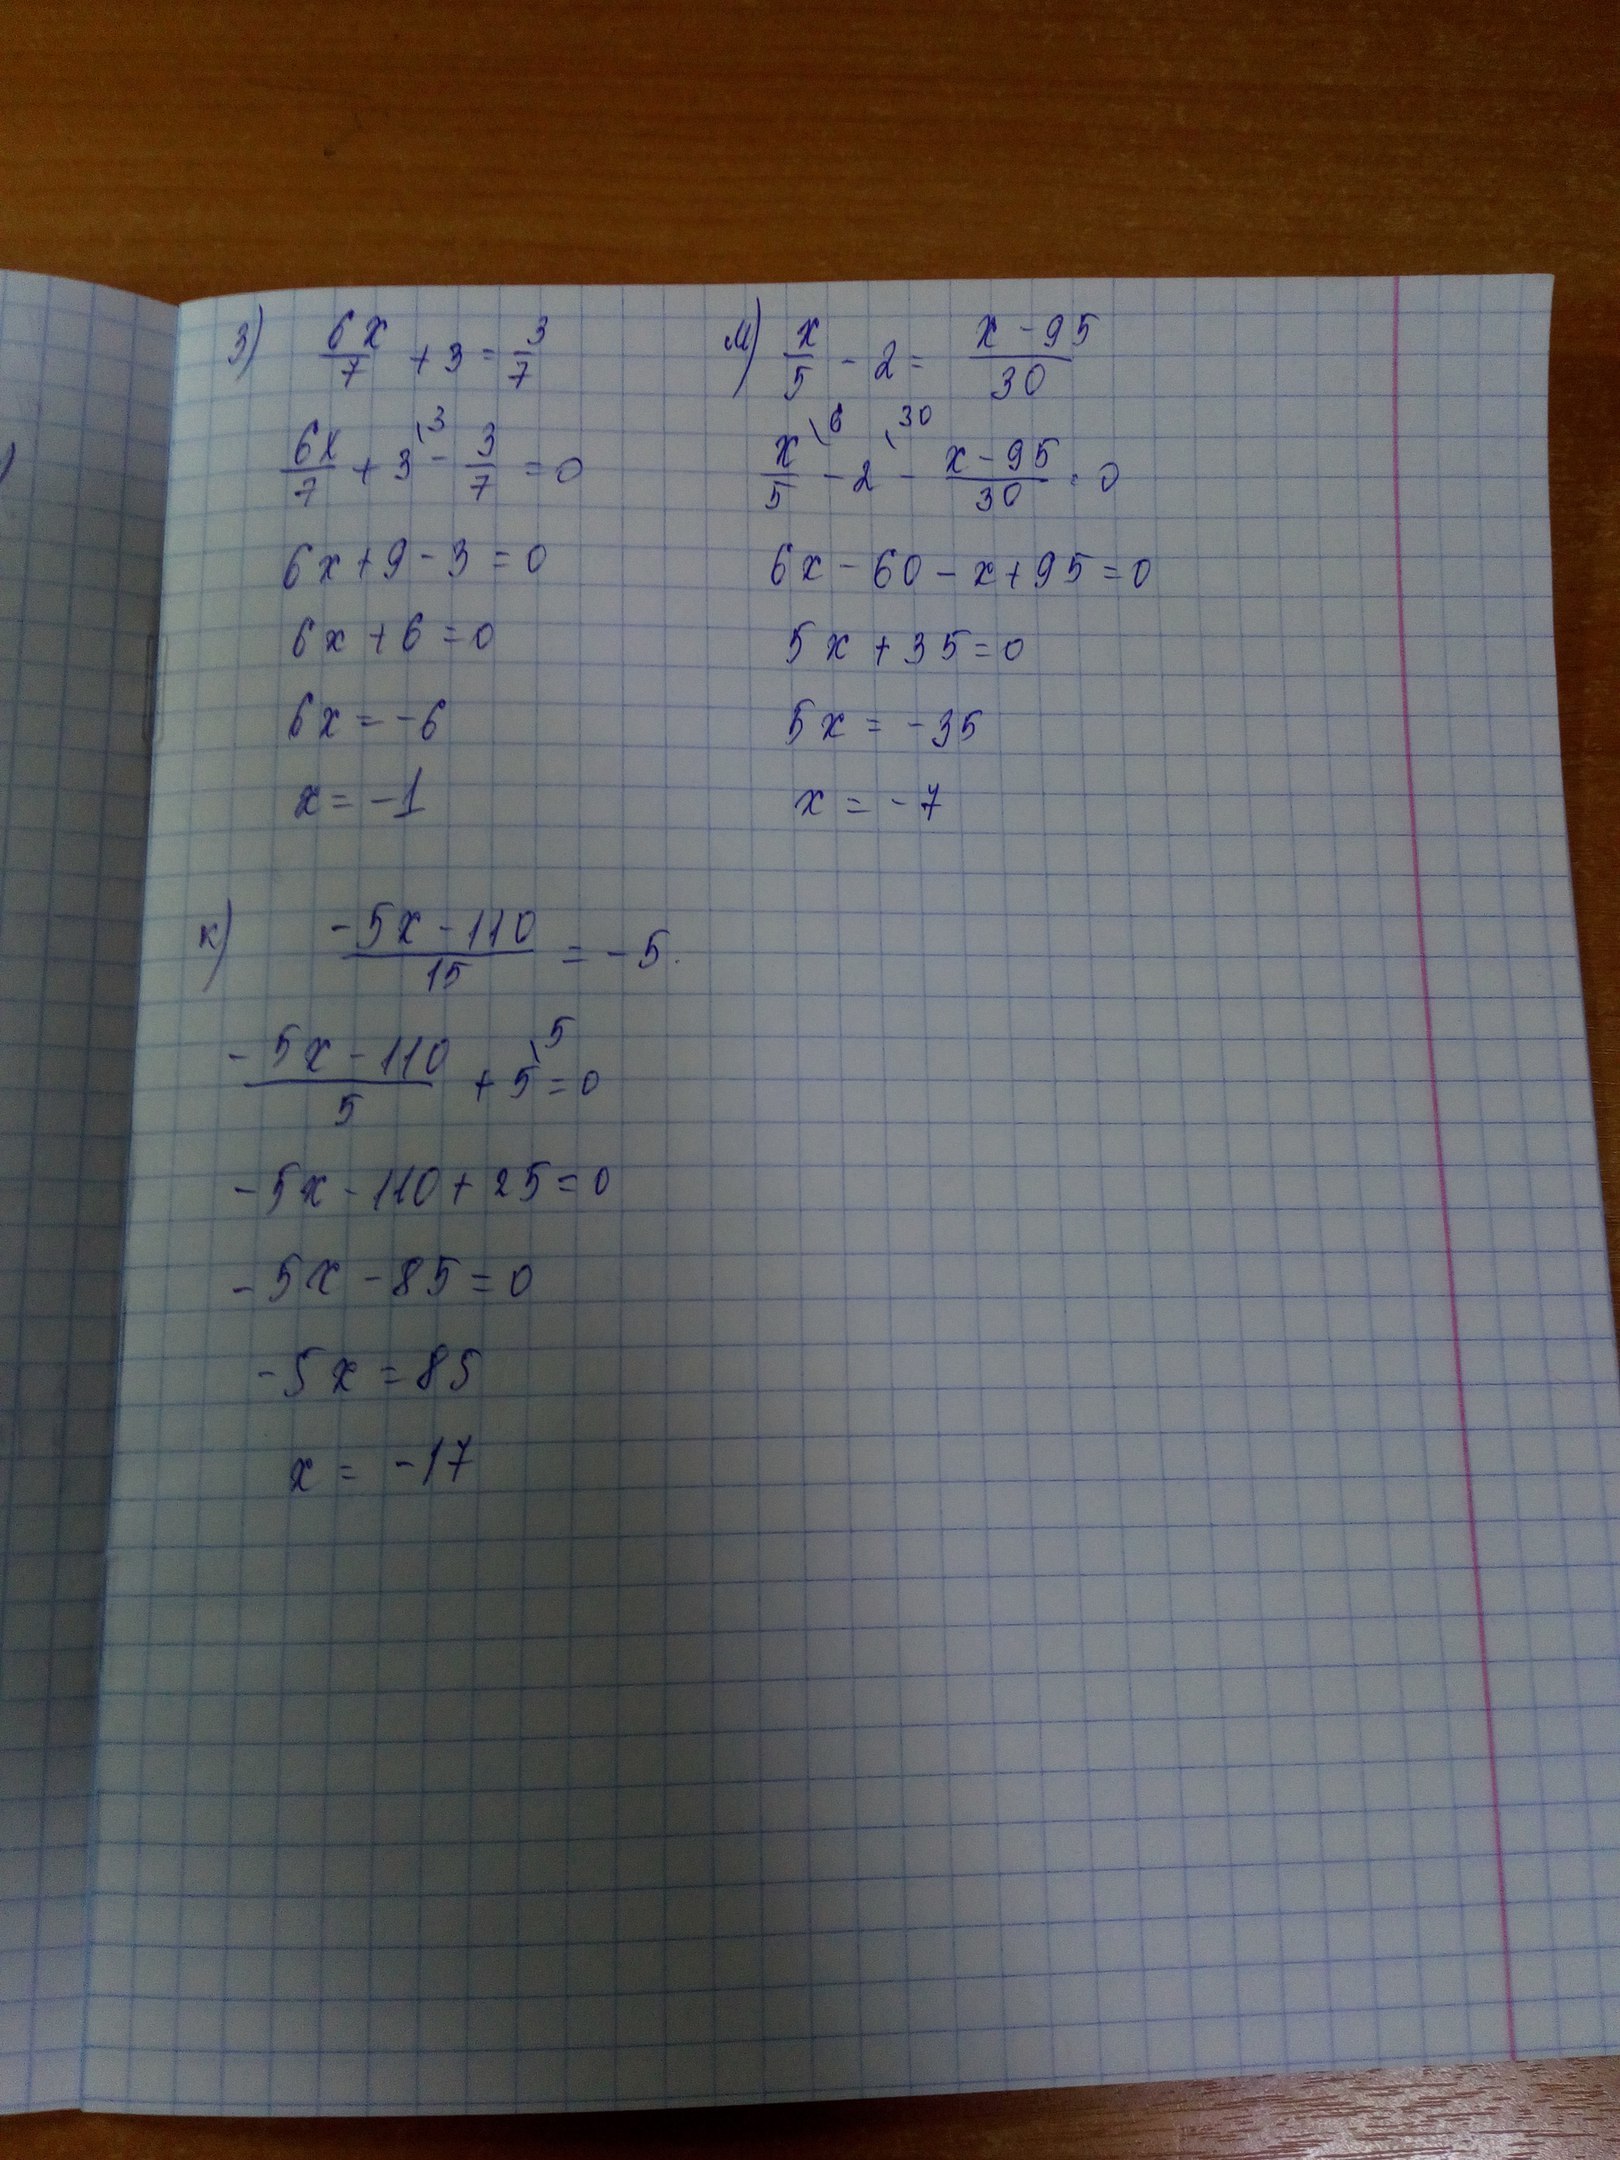 з) 6x/7 + 3 = 3/7
6x/7 + 3\3 - 3/7 = 0
6x + 9 - 3 = 0
6x + 6 = 0
6x = -6
x = -1
м) x/5 - 2 = x - 95/30
x/5\6 - 2\30 - x - 95/30 = 0
6x - 60 - x + 95 = 0
5x + 35 = 0
5x = -35
x = -7
к) -5x - 110/15 = -5.
-5x - 110/5 + 5\5 = 0
-5x - 110 + 25 = 0
-5x - 85 = 0
-5x = 85
x = -17